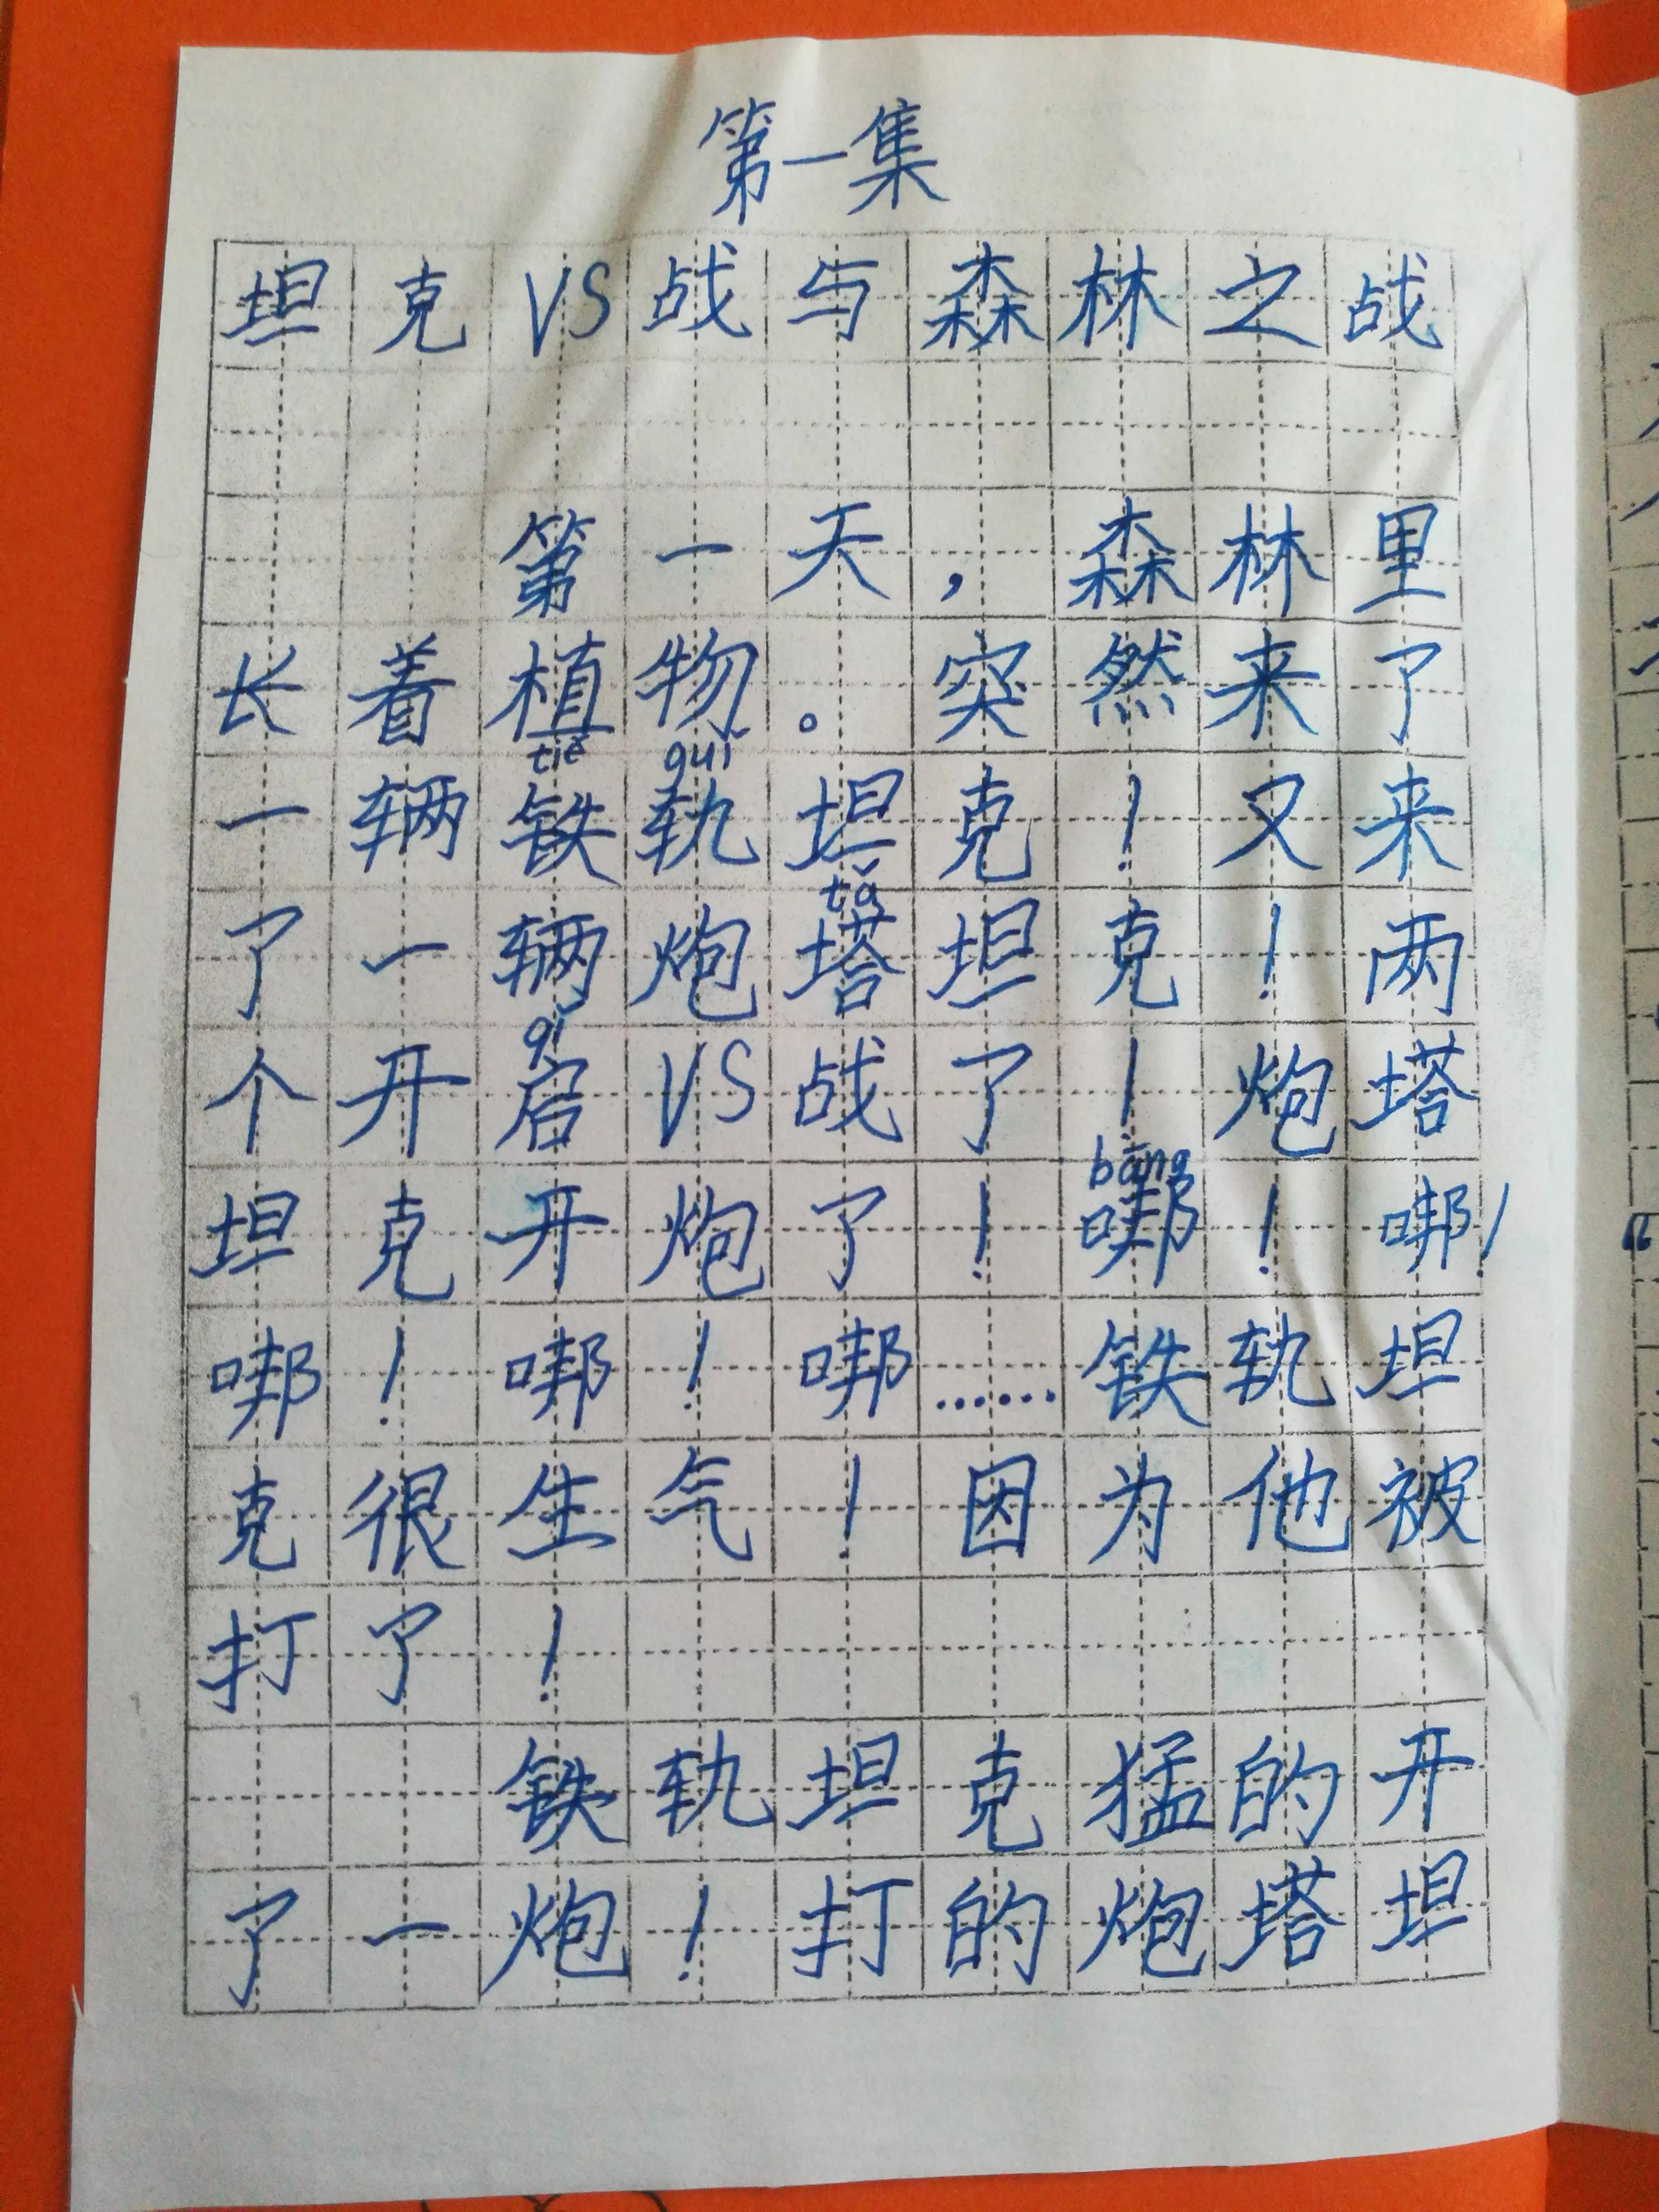 第一集
坦克VS战与森林之战
第一天,森林里
长着植物。突然来了
tiě guǐ
一辆铁轨坦克!又来
tǎ
了一辆炮塔坦克!两
qǐ
个开启VS战了!炮塔
bāng
坦克开炮了!啷!啷!
啷!啷!啷……铁轨坦
克很生气!因为他被
打了!
铁轨坦克猛的开
了一炮!打的炮塔坦